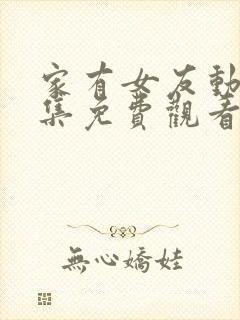 家有女友動
集免費觀看
無心嬌娃